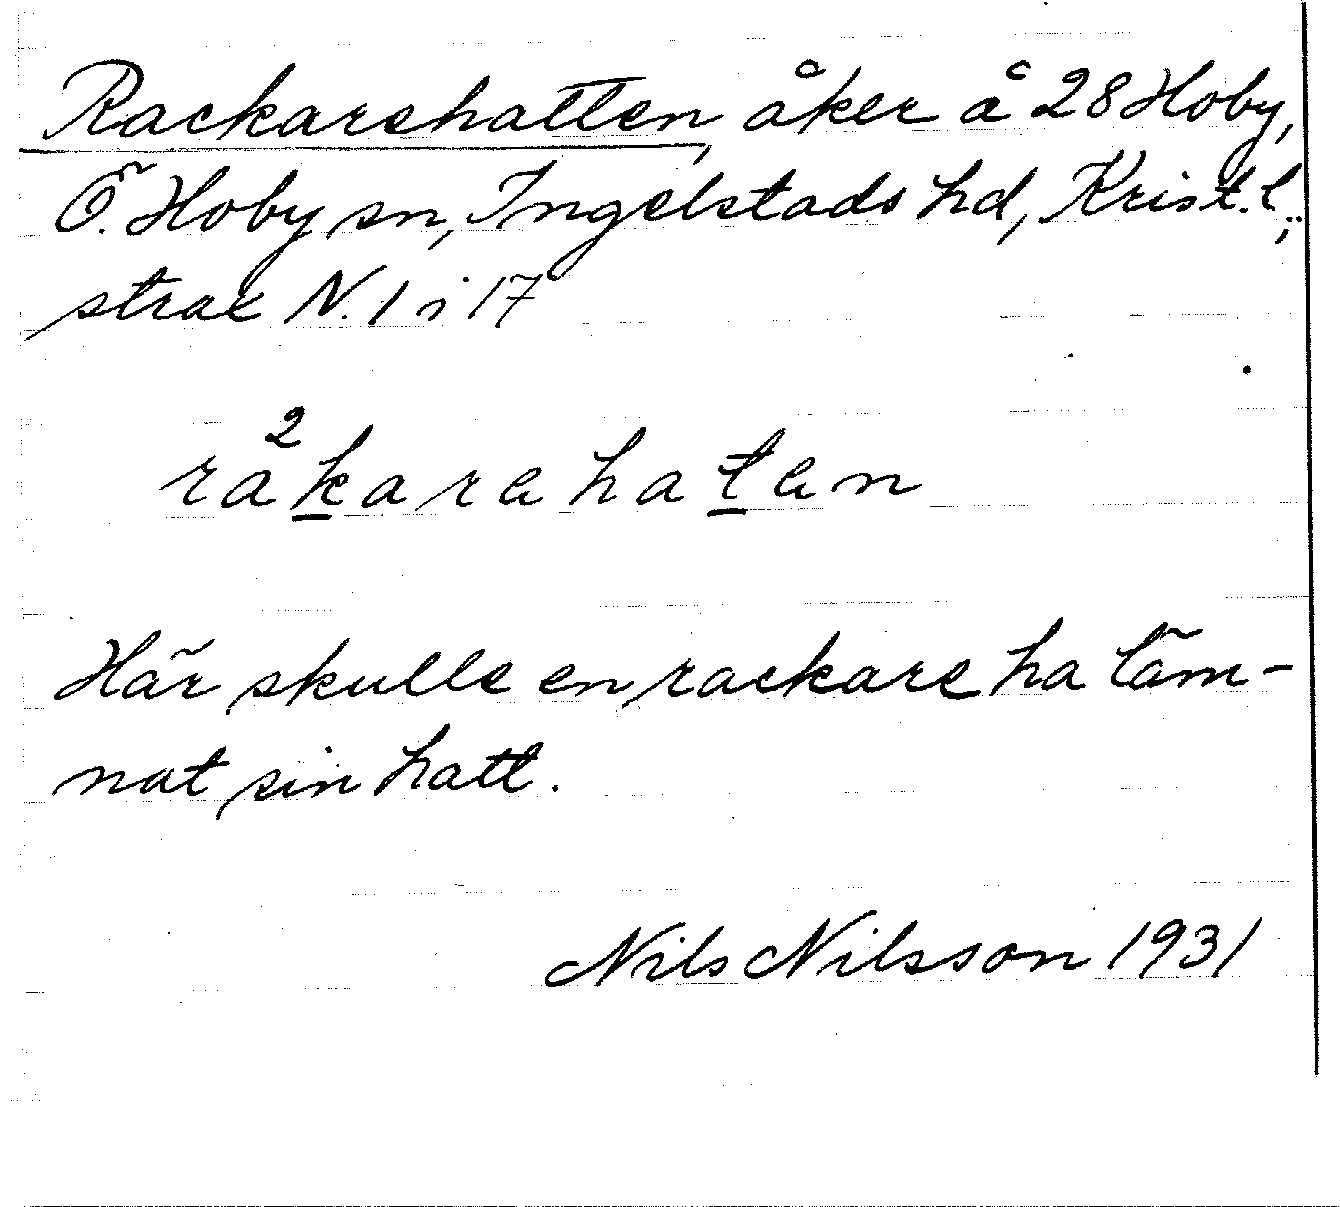 Rackarehatten, åker å 28 Hoby,
Ö. Hoby sn, Ingelstads hd, Krist. l;
strax N. 1 i 17
ra²karehaten
Här skulle en rackare ha läm-
nat sin hatt.
Nils Nilsson 1931